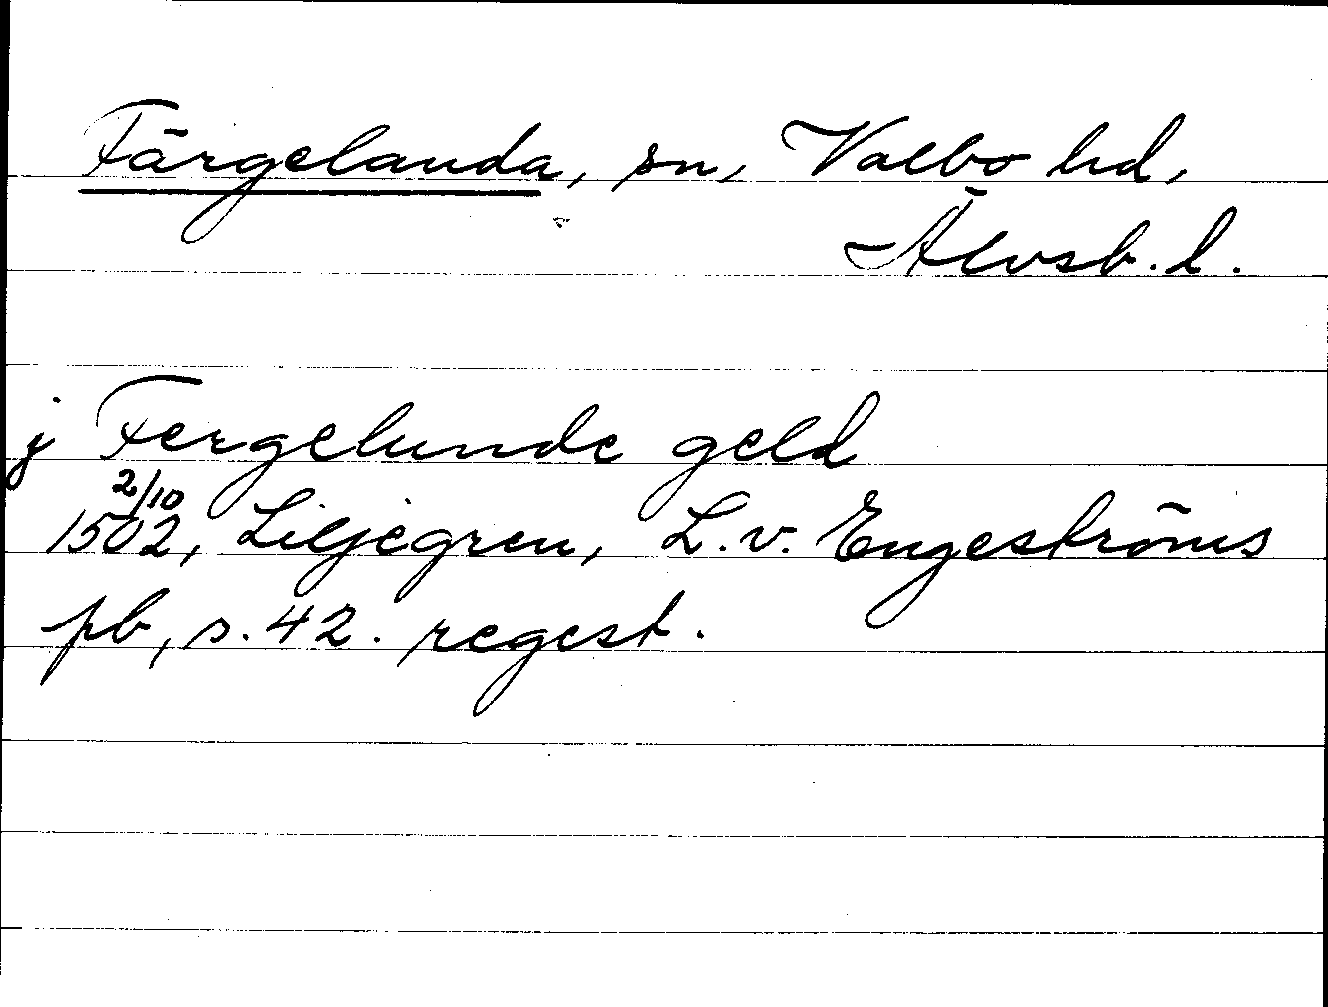 Färgelanda, sn, Valbo hd,
Älvsb. l.
j Fergelunde geld
1502 2/10, Liljegren, L. v. Engeströms
pb, s. 42. regest.